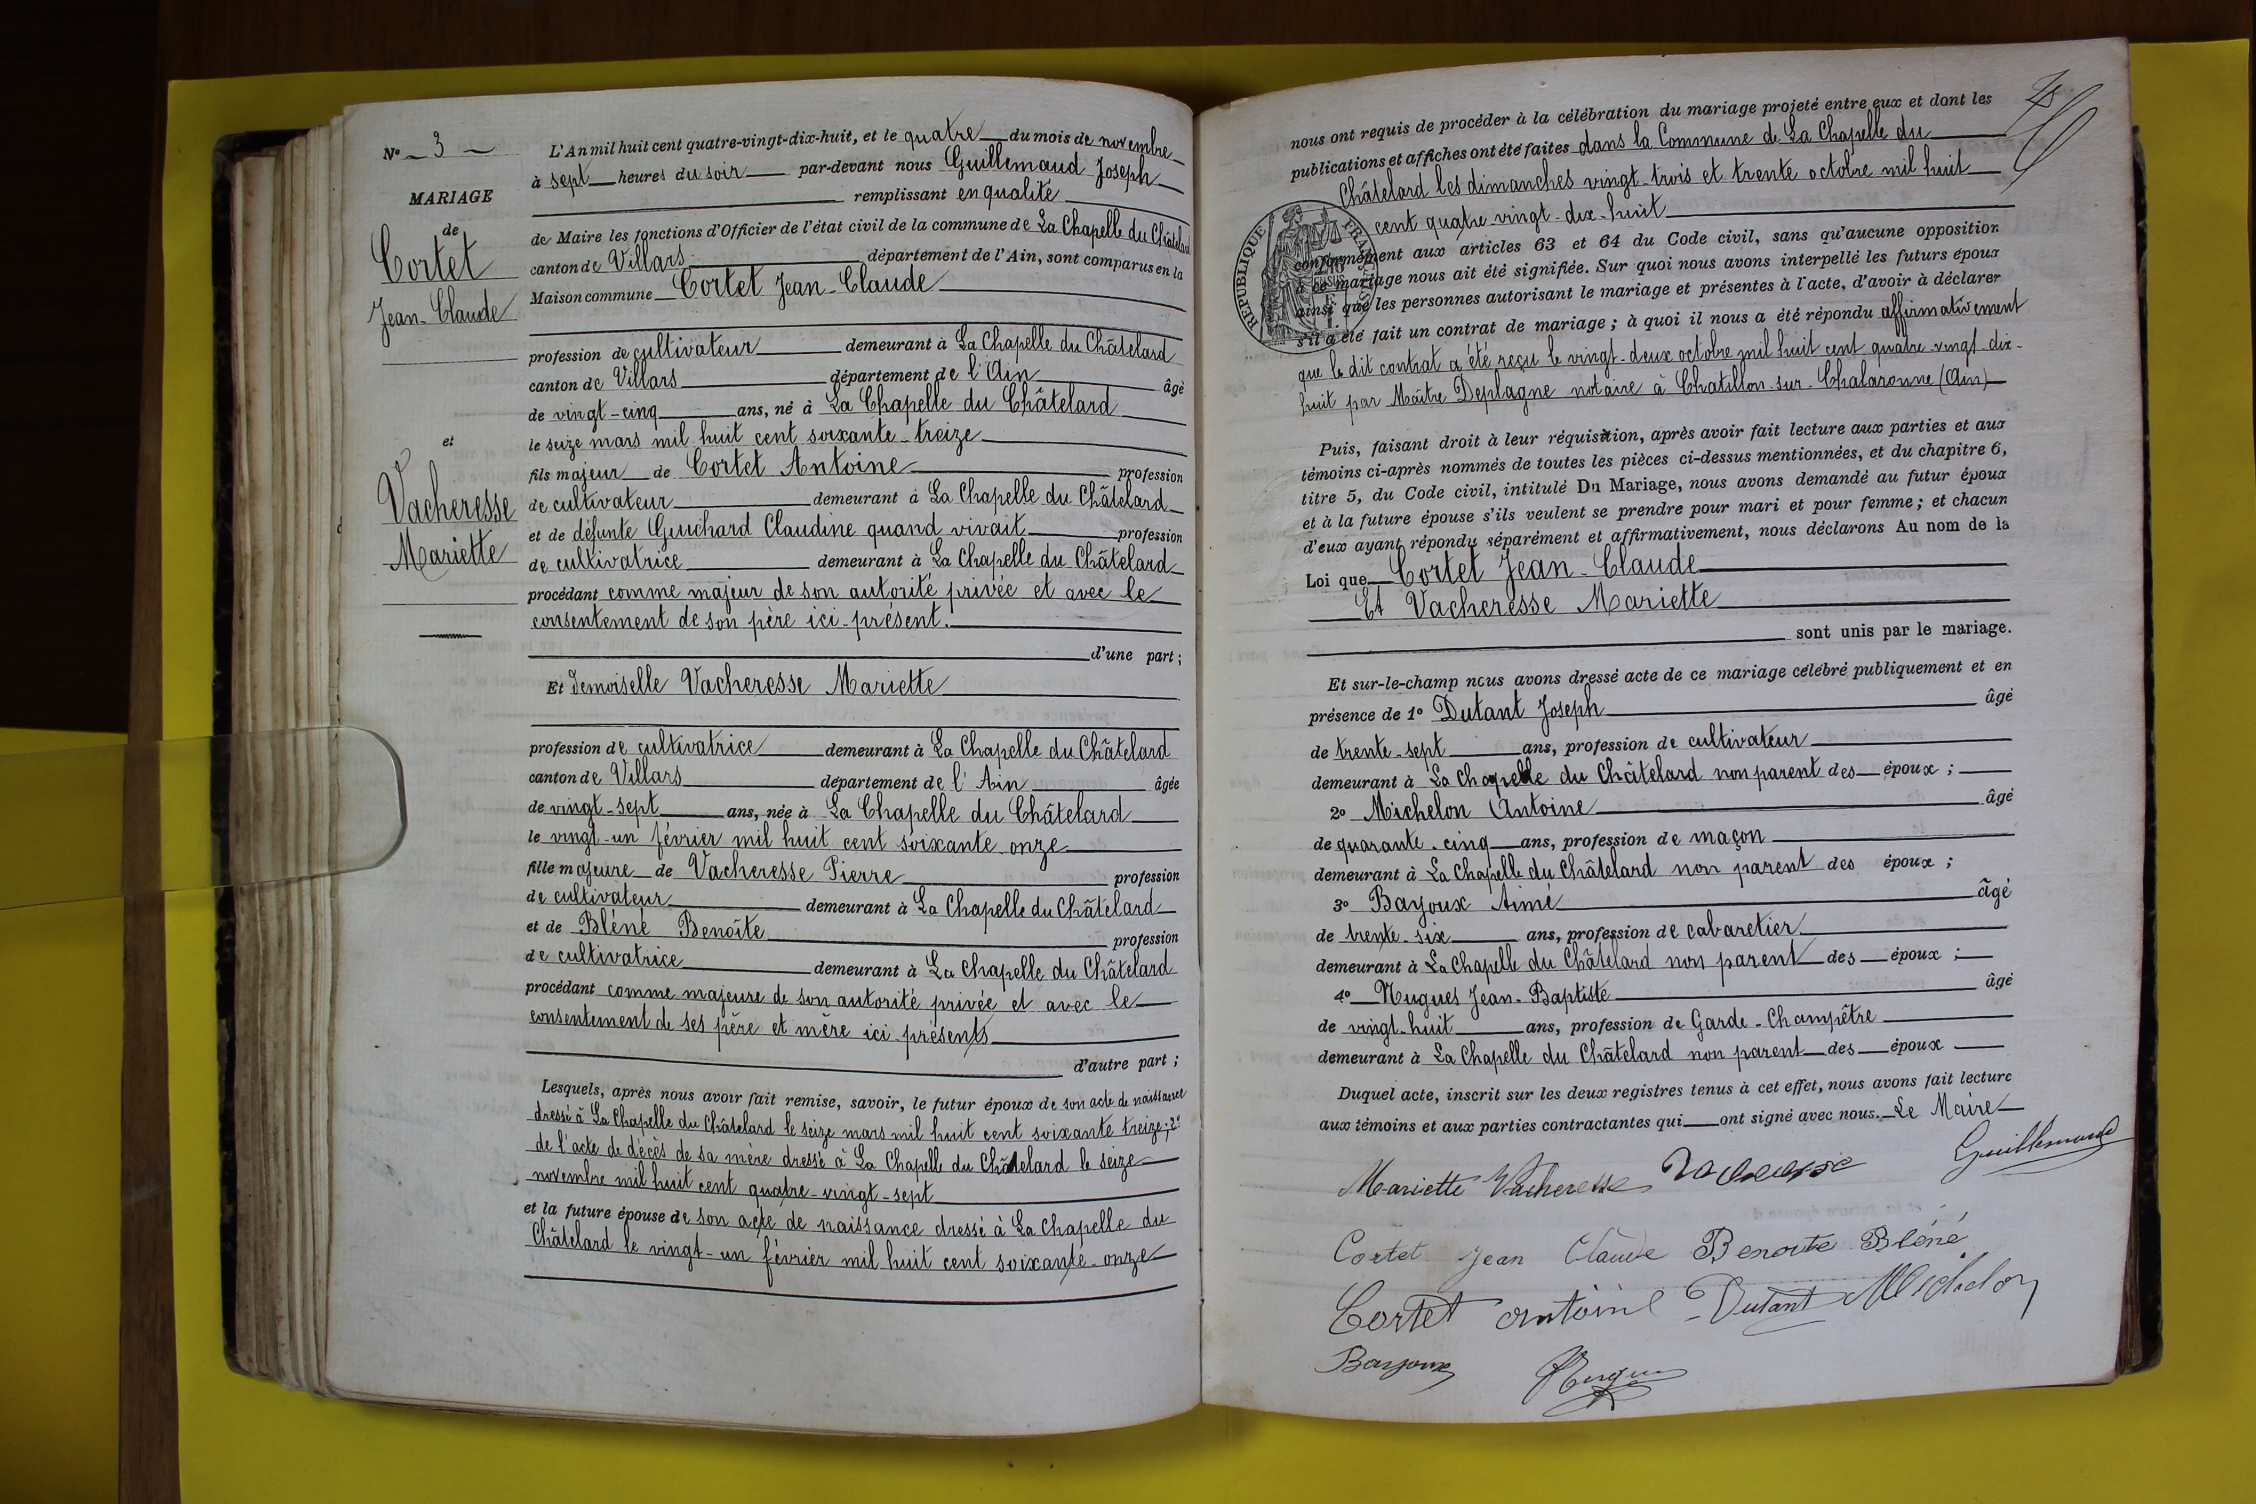 N° 3
MARIAGE
de
Cortet
Jean-Claude
et
Vacheresse
Mariette
L'An mil huit cent quatre-vingt-dix-huit, et le quatre du mois de novembre
à sept heures du soir par-devant nous Guillemaud Joseph
remplissant en qualité
de Maire les fonctions d'Officier de l'état civil de la commune de La Chapelle du Châtelard
canton de Villars département de l'Ain, sont comparus en la
Maison commune Cortet Jean-Claude
profession de cultivateur demeurant à La Chapelle du Châtelard
canton de Villars département de l'Ain âgé
de vingt-cinq ans, né à La Chapelle du Châtelard
le seize mars mil huit cent soixante-treize
fils majeur de Cortet Antoine profession
de cultivateur demeurant à La Chapelle du Châtelard
et de défunte Guichard Claudine quand vivait profession
de cultivatrice demeurant à La Chapelle du Châtelard
procédant comme majeur de son autorité privée et avec le
consentement de son père ici-présent.
d'une part ;
Et Demoiselle Vacheresse Mariette
profession de cultivatrice demeurant à La Chapelle du Châtelard
canton de Villars département de l'Ain âgée
de vingt-sept ans, née à La Chapelle du Châtelard
le vingt-un février mil huit cent soixante-onze
fille majeure de Vacheresse Pierre profession
de cultivateur demeurant à La Chapelle du Châtelard
et de Bléné Benoîte profession
de cultivatrice demeurant à La Chapelle du Châtelard
procédant comme majeure de son autorité privée et avec le
consentement de ses père et mère ici-présents
d'autre part ;
Lesquels, après nous avoir fait remise, savoir, le futur époux de son acte de naissance
dressé à La Chapelle du Châtelard le seize mars mil huit cent soixante treize; 2°
de l'acte de décès de sa mère dressé à La Chapelle du Châtelard le seize
novembre mil huit cent quatre-vingt-sept
et la future épouse de son acte de naissance dressé à La Chapelle du
Châtelard le vingt-un février mil huit cent soixante-onze
nous ont requis de procéder à la célébration du mariage projeté entre eux et dont les
publications et affiches ont été faites dans la Commune de La Chapelle du
Châtelard les dimanches vingt-trois et trente octobre mil huit
cent quatre-vingt-dix-huit
RÉPUBLIQUE FRANÇAISE
conformément aux articles 63 et 64 du Code civil, sans qu'aucune opposition
à ce mariage nous ait été signifiée. Sur quoi nous avons interpellé les futurs époux
ainsi que les personnes autorisant le mariage et présentes à l'acte, d'avoir à déclarer
s'il a été fait un contrat de mariage ; à quoi il nous a été répondu affirmativement
que le dit contrat a été reçu le vingt-deux octobre mil huit cent quatre-vingt-dix-
huit par Maître Deplagne notaire à Chatillon-sur-Chalaronne (Ain)
Puis, faisant droit à leur réquisition, après avoir fait lecture aux parties et aux
témoins ci-après nommés de toutes les pièces ci-dessus mentionnées, et du chapitre 6,
titre 5, du Code civil, intitulé Du Mariage, nous avons demandé au futur époux
et à la future épouse s'ils veulent se prendre pour mari et pour femme ; et chacun
d'eux ayant répondu séparément et affirmativement, nous déclarons Au nom de la
Loi que Cortet Jean-Claude
Et Vacheresse Mariette
sont unis par le mariage.
Et sur-le-champ nous avons dressé acte de ce mariage célébré publiquement et en
présence de 1° Dutant Joseph âgé
de trente-sept ans, profession de cultivateur
demeurant à La Chapelle du Châtelard non parent des époux ;
2° Michelon Antoine âgé
de quarante-cinq ans, profession de maçon
demeurant à La Chapelle du Châtelard non parent des époux ;
3° Bayoux Aimé âgé
de trente-six ans, profession de cabaretier
demeurant à La Chapelle du Châtelard non parent des époux ;
4° Nugues Jean-Baptiste âgé
de vingt-huit ans, profession de Garde-Champêtre
demeurant à La Chapelle du Châtelard non parent des époux
Duquel acte, inscrit sur les deux registres tenus à cet effet, nous avons fait lecture
aux témoins et aux parties contractantes qui ont signé avec nous. Le Maire
Mariette Vacheresse Vacheresse Guillemaud
Cortet Jean Claude Benoite Bléné
Cortet Antoine Dutant Michelon
Bayoux Nugues